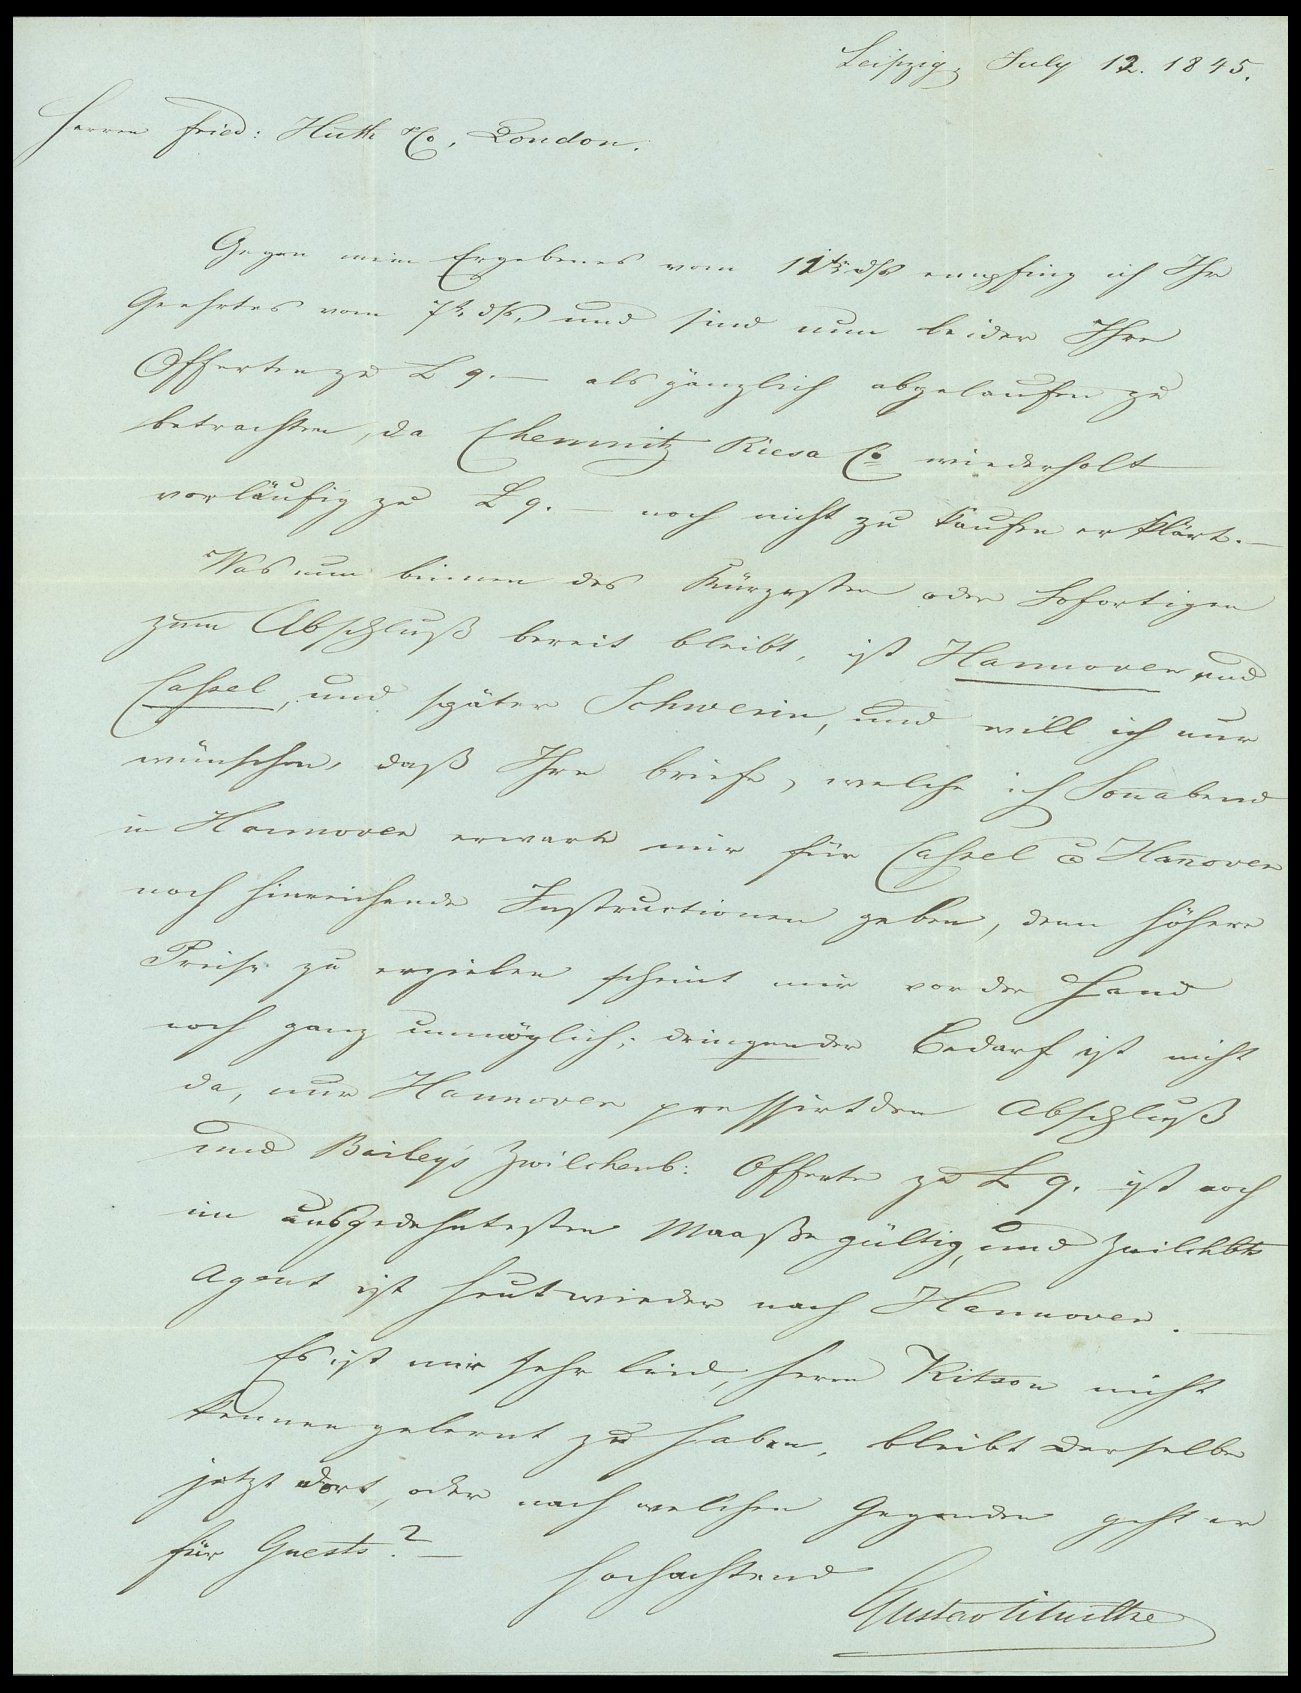 Leipzig, July 12. 1845.
Herren Fried: Huth & Co, London.
Gegen mein Ergebenes vom 11ten dß empfing ich Ihr
Geehrtes vom 7t. dß. und sind nun beider Ihre
Offerten zu £ 9.— als gänzlich abgelaufen zu
betrachten, da Chemnitz Riesa Co wiederholt
vorläufig zu £ 9.— noch nicht zu kaufen erklärt.—
Was nun binnen des Kürzesten oder Sofortigen
zum Abschluß bereit bleibt, ist Hannover und
Cassel, und später Schwerin, und will ich nur
wünschen, daß Ihre Briefe, welche ich Sonabend
in Hannover erwarte mir für Cassel & Hanover
noch hinreichende Instructionen geben, denn höhere
Preise zu erzielen scheint mir vor der Hand
noch ganz unmöglich; dringender Bedarf ist nicht
da, nur Hannover pressirt den Abschluß
und Bailey's Zwilchenb: Offerte zu £ 9. ist noch
im ausgedehntesten Maaße gültig, und Zwilchbts
Agent ist heut wieder nach Hannover.—
Es ist mir sehr leid, Herrn Kitson nicht
kennen gelernt zu haben, bleibt derselbe
jetzt dort, oder nach welchen Gegenden geht er
für Guests?—
Hochachtend